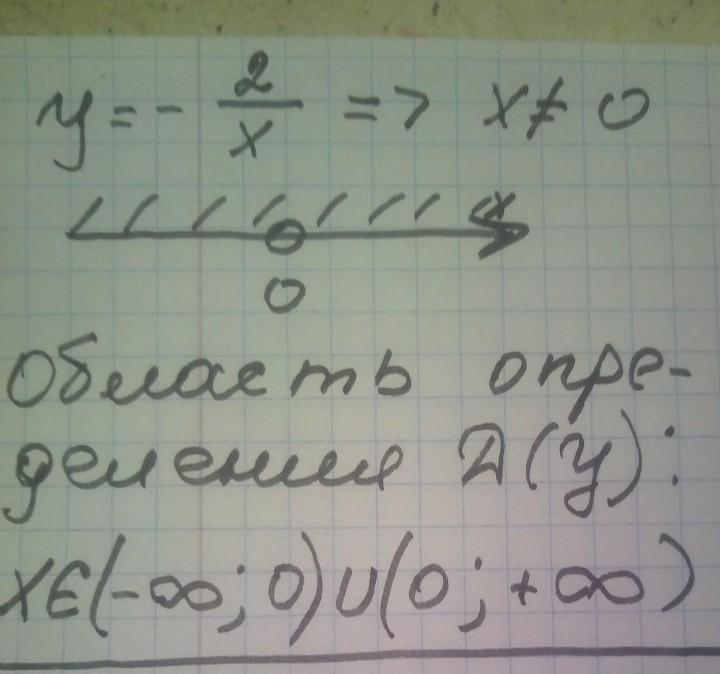 y = - 2/x => x ≠ 0
x
0
Область опре-
деления D(y):
x∈(-∞; 0)∪(0; +∞)